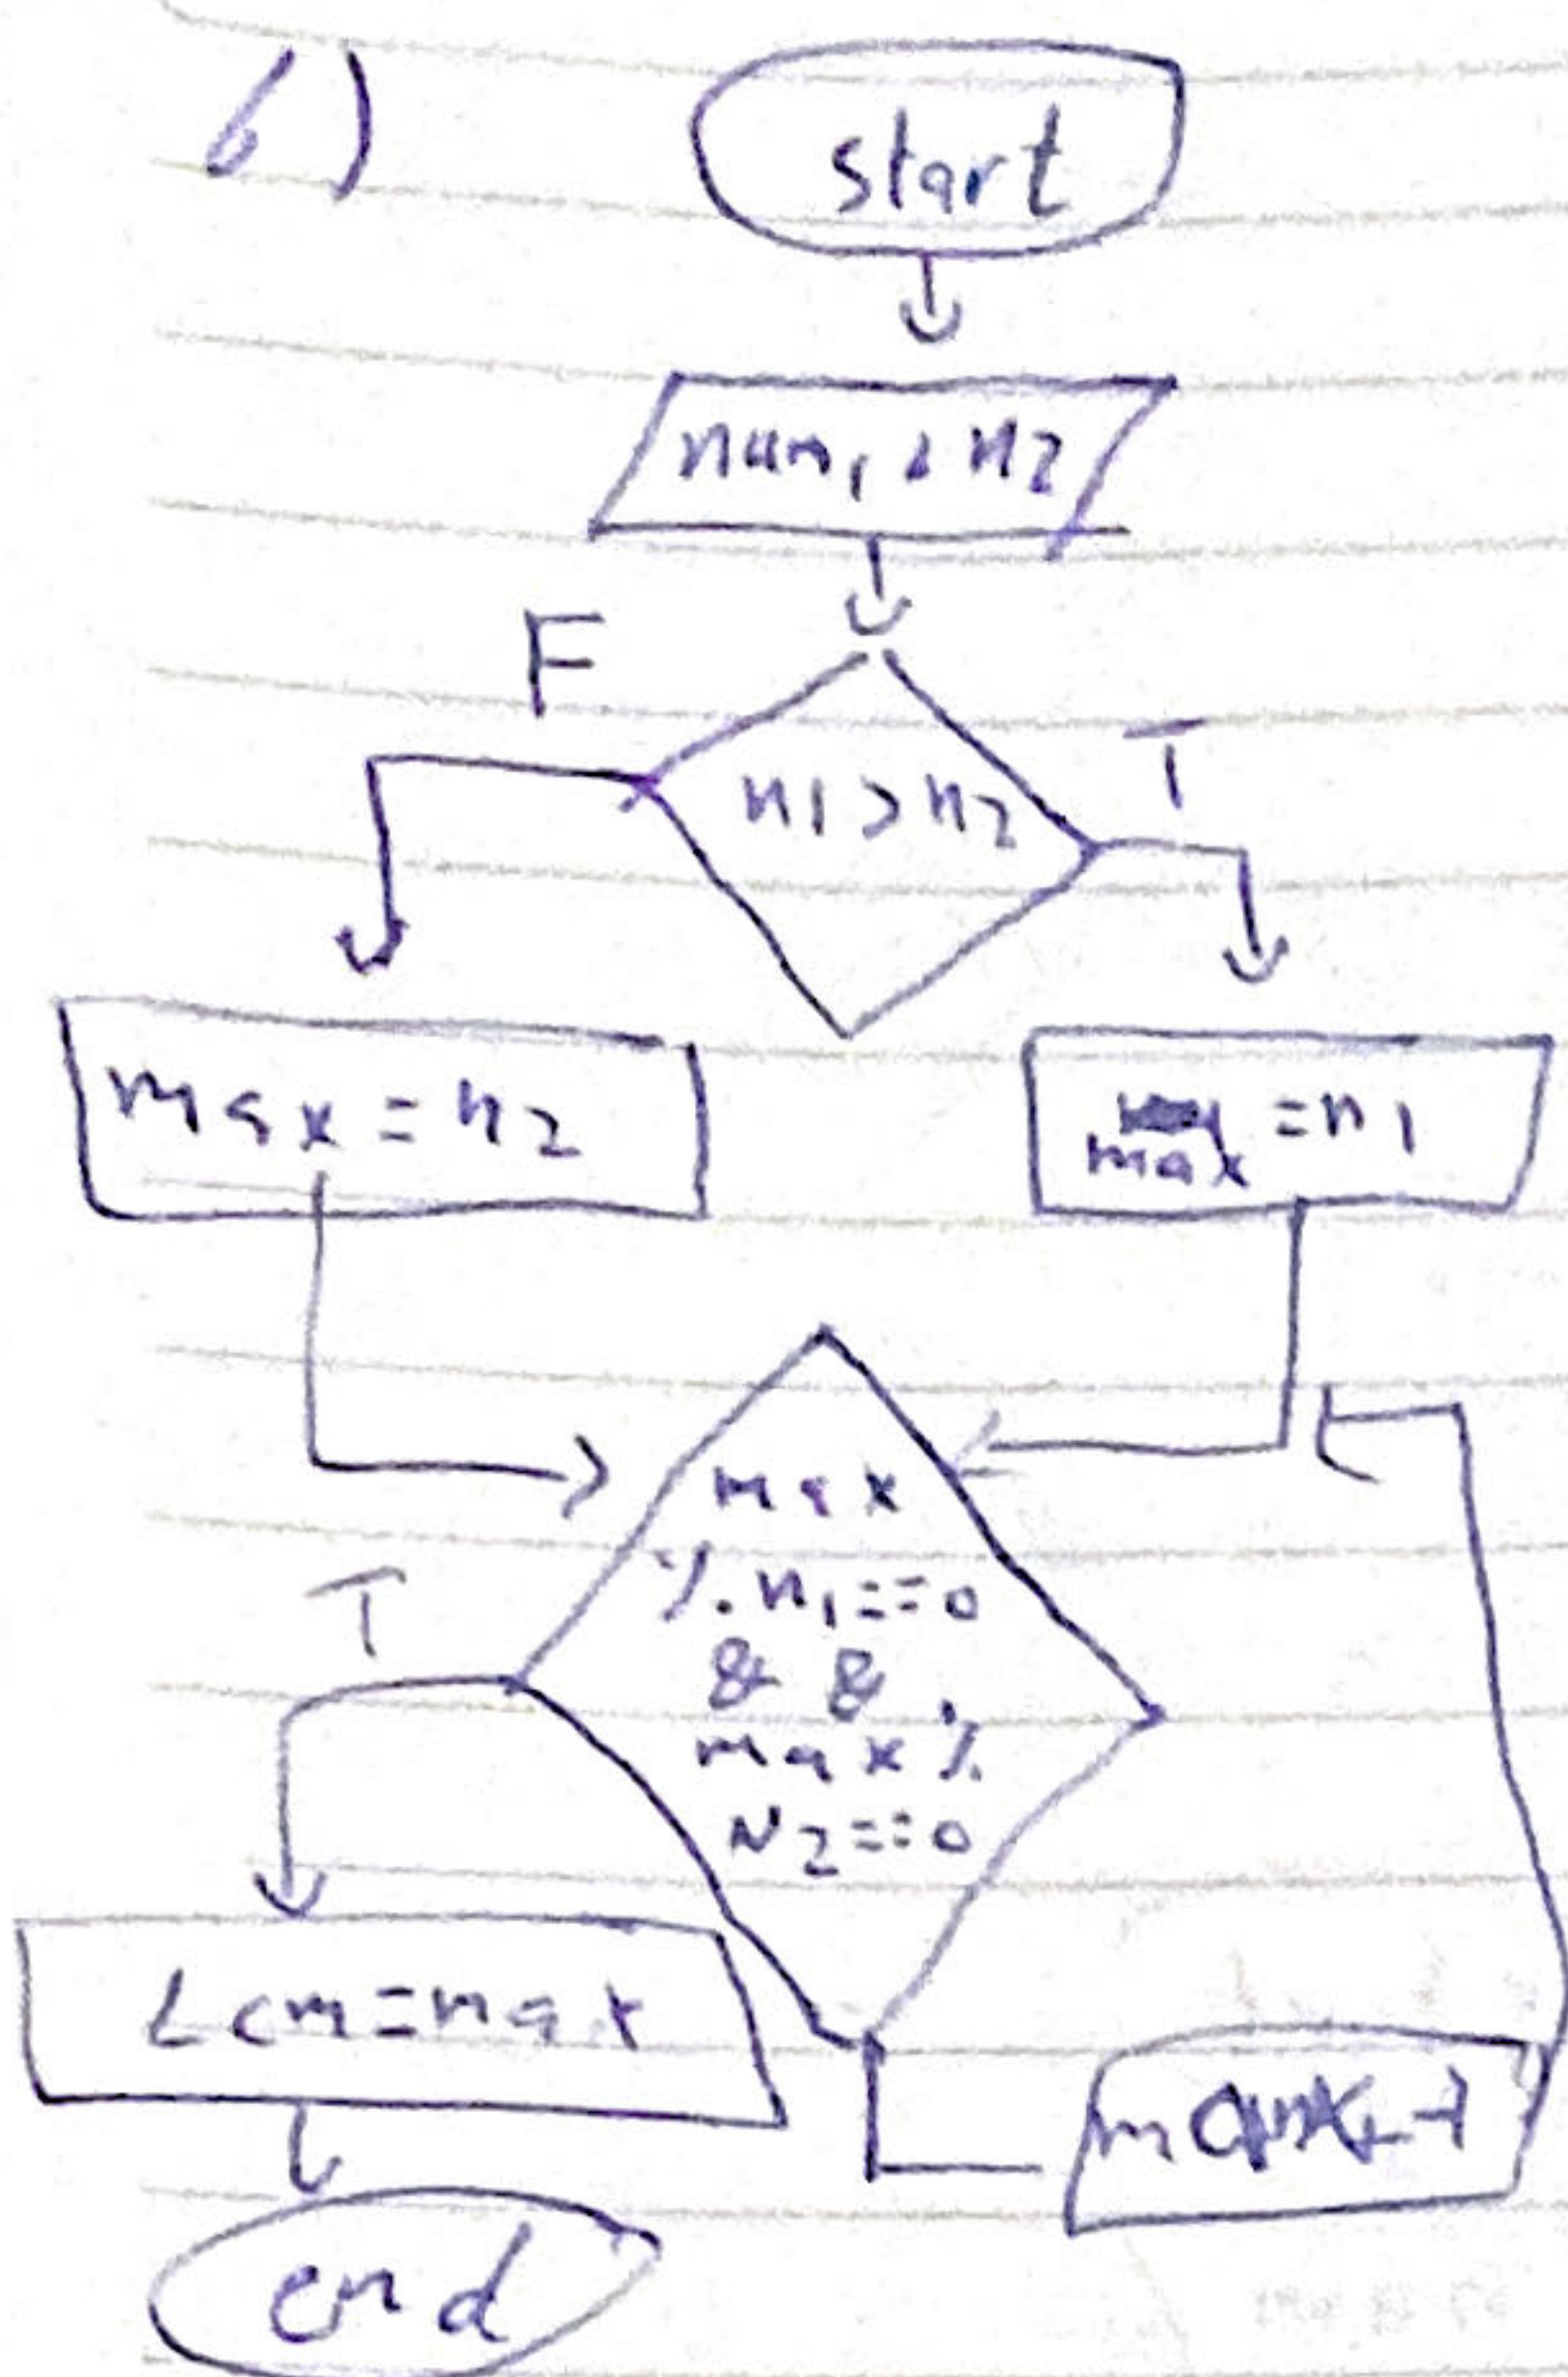 6)
start
num1, n2
F
T
n1 > n2
max = n2
max = n1
max
% n1 == 0
&&
max %
N2 == 0
T
Lcm = max
end